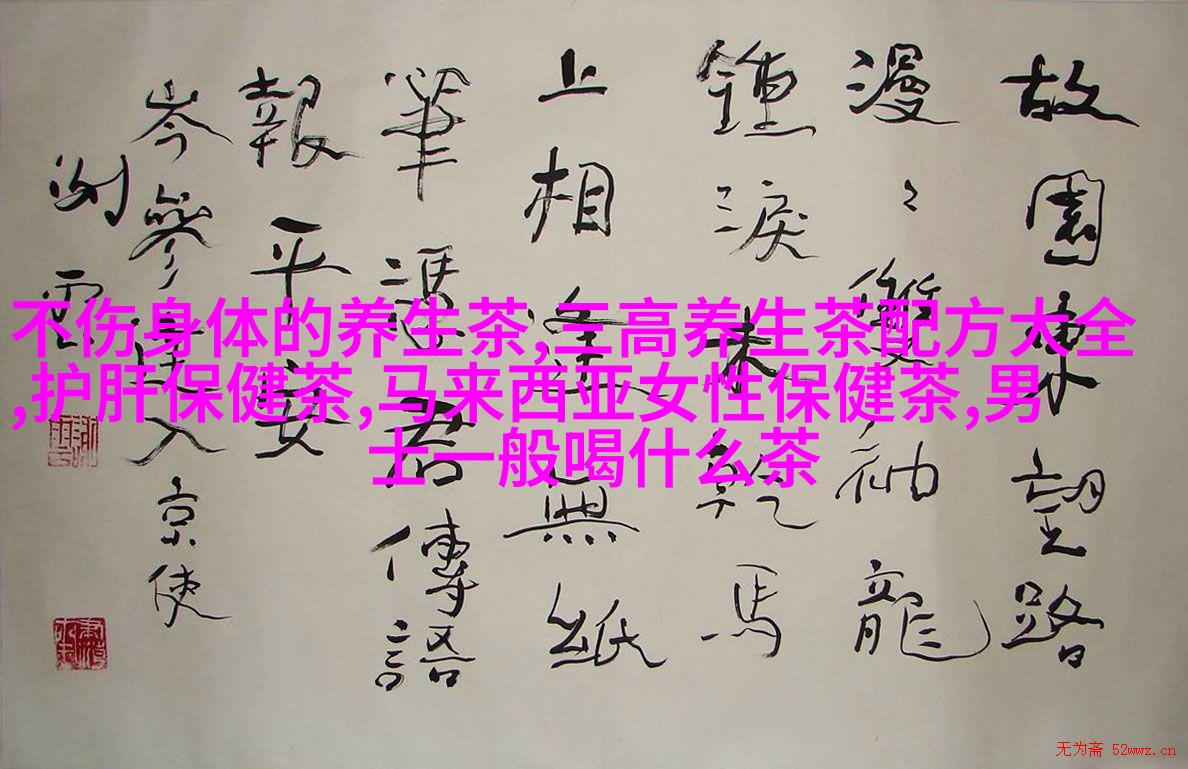 故園東望路
漫〻雙袖龍
鍾淚未乾馬
上相逢無紙
筆憑君傳語
報平安
岑參逢入京使
不伤身体的养生茶,三高养生茶配方大全
,护肝保健茶,马来西亚女性保健茶,男
士一般喝什么茶
无为斋 52wwz.cn